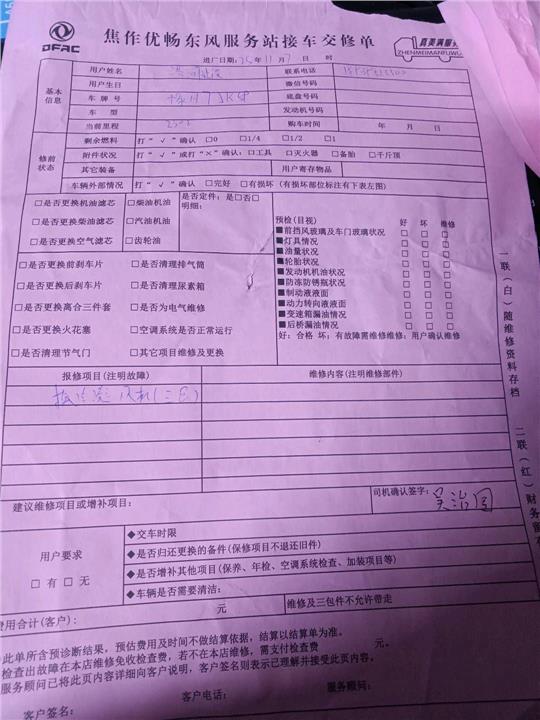 DFAC
焦作优畅东风服务站接车交修单
真美满服务
ZHENMEIMANFUWU
进厂日期: 年 11 月 7 日 时
基本信息
用户姓名
联系电话
用户生日
微信号码
车 牌 号
底盘号码
车 型
发动机号码
当前里程
购车时间
年 月 日
修前状态
剩余燃料 打“√”确认 □0 □1/4 □1/2 □1
附件状况 打“√”或打“×”确认:□工具 □灭火器 □备胎 □千斤顶
其它装备
用户寄存物品
车辆外部情况 打“√”确认 □完好 □有损坏(有损坏部位标注有下表左图)
□是否更换机油滤芯 □柴油机油
□是否更换柴油滤芯 □汽油机油
□是否更换空气滤芯 □齿轮油
是否定件:是□否□
明细:
□是否更换前刹车片 □是否清理排气筒
□是否更换后刹车片 □是否清理尿素箱
□是否更换离合三件套 □是否为电气维修
□是否更换火花塞 □空调系统是否正常运行
□是否清理节气门 □其它项目维修及更换
预检(目视) 好 坏 维修
■前挡风玻璃及车门玻璃状况 □ □ □
■灯具情况 □ □ □
■油量状况 □ □ □
■轮胎状况 □ □ □
■发动机机油状况 □ □ □
■防冻防锈瓶状况 □ □ □
■制动液液面 □ □ □
■动力转向液液面 □ □ □
■变速箱漏油情况 □ □ □
■后桥漏油情况 □ □ □
好:合格 坏:有故障需维修维修:用户确认维修
一联(白)随维修资料存档
二联(红)财务
报修项目(注明故障)
维修内容(注明维修部件)
风机(三包)
建议维修项目或增补项目:
司机确认签字:
用户要求
□ 有 □ 无
◆交车时限
◆是否归还更换的备件(保修项目不退还旧件)
◆是否增补其他项目(保养、年检、空调系统检查、加装项目等)
◆车辆是否需要清洁:
费用合计(客户): 元
维修及三包件不允许带走
此单所含预诊断结果,预估费用及时间不做结算依据,结算以结算单为准。
检查出故障在本店维修免收检查费,若不在本店维修,需支付检查费 元。
服务顾问已将此页内容详细向客户说明,客户签名则表示已理解并接受此页内容。
客户签名: 客户电话: 服务顾问: